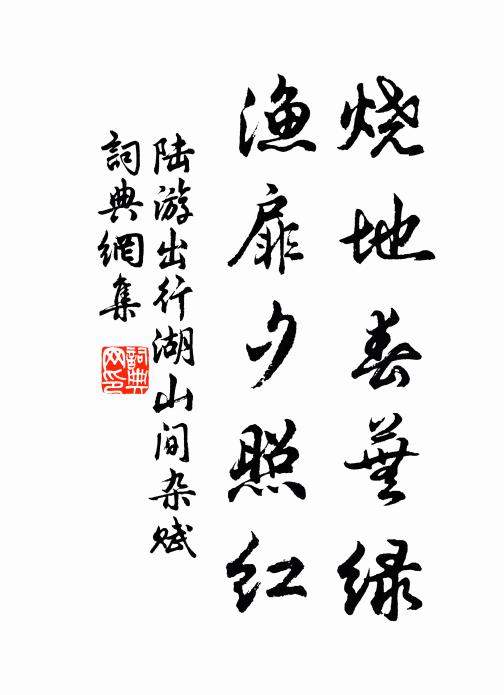 烧地春芜绿
渔扉夕照红
陆游出行湖山间杂赋
詞典網集
詞典网印